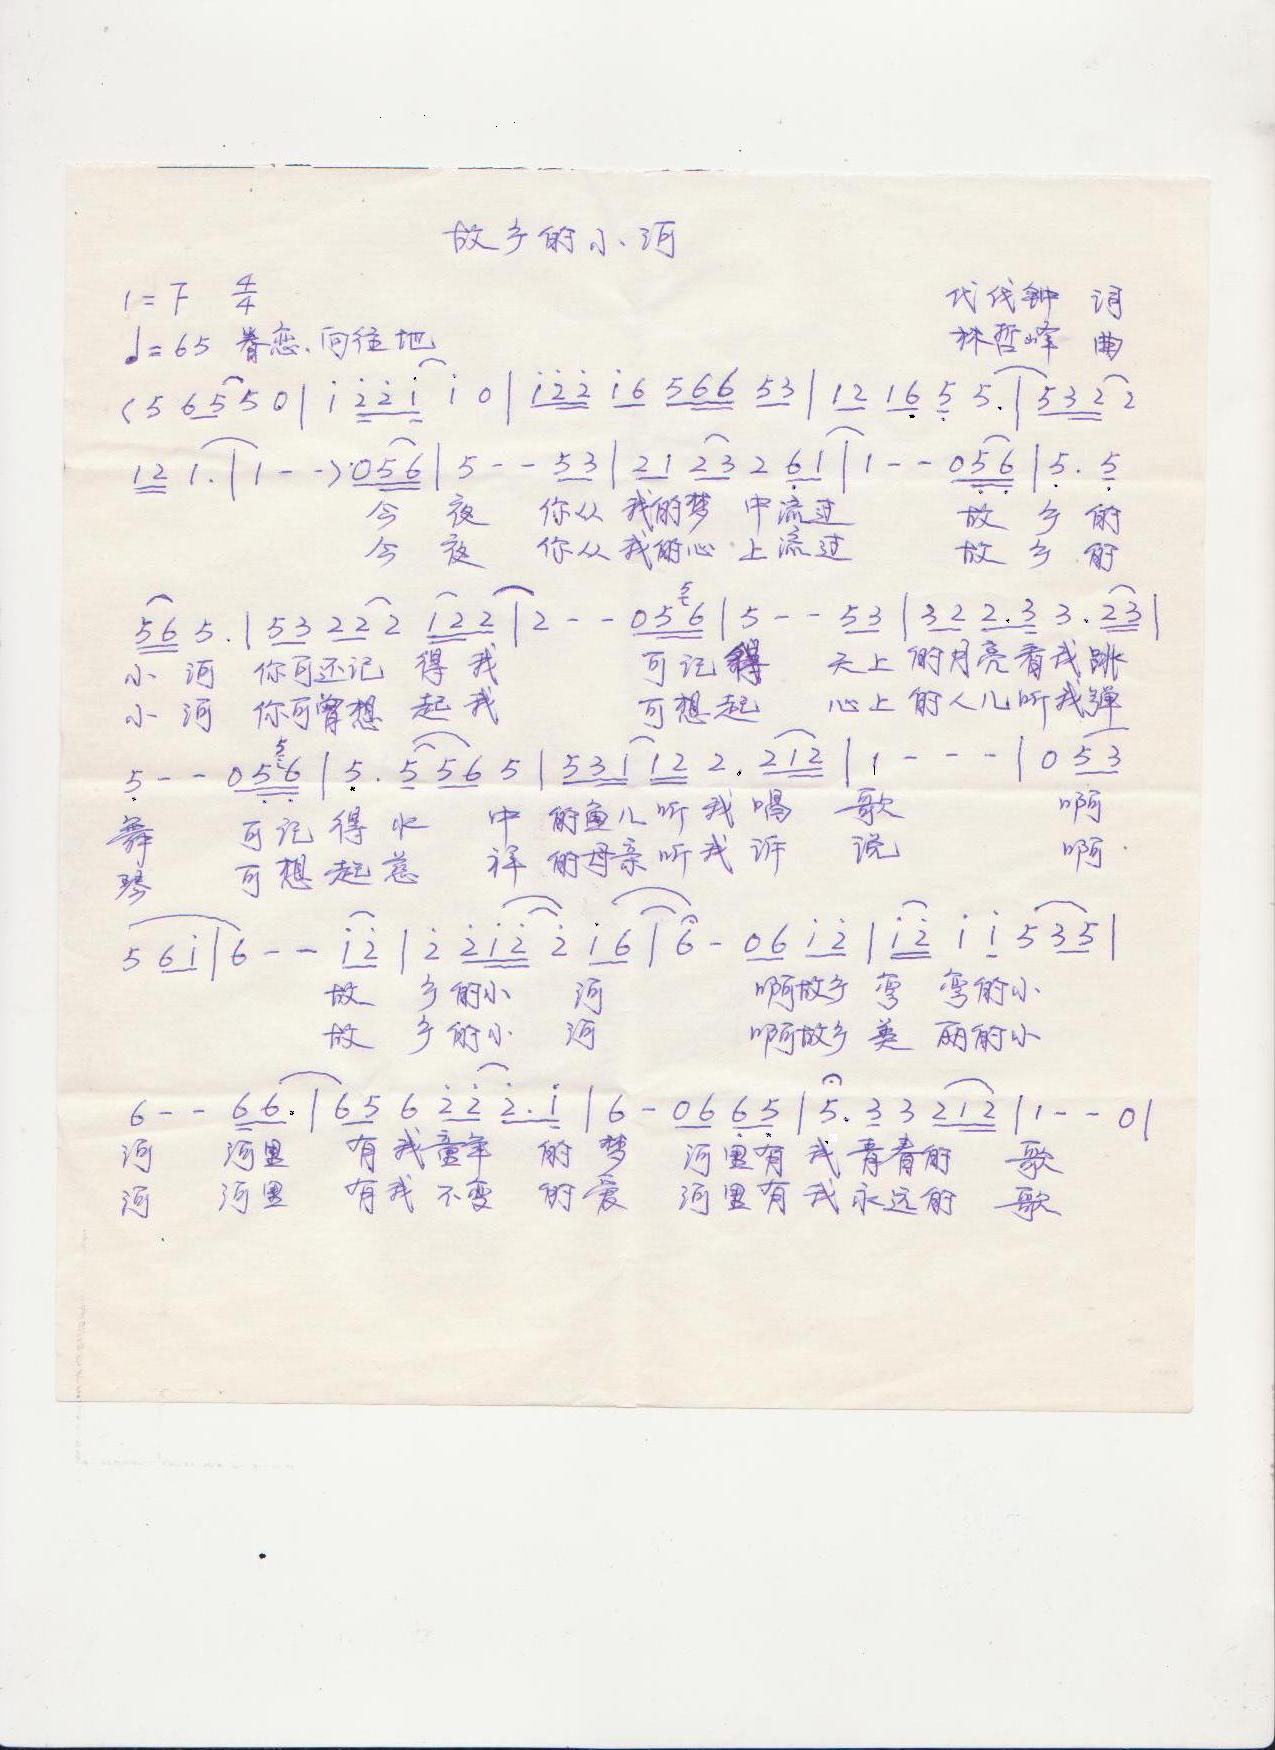 故乡的小河
1=F 4/4
代代钟 词
♩=65 眷恋、向往地
林哲峰 曲
(5 6 5 5 0 | i 2̇ 2̇ i i 0 | i 2̇ 2̇ i 6 5 6 6 5 3 | 1 2 1 6̣ 5̣ 5. | 5 3 2 2 2
1 2 1. | 1 - -) 0 5 6 | 5 - - 5 3 | 2 1 2 3 2 6̣ 1 | 1 - - 0 5̣ 6̣ | 5̣. 5̣
今 夜 你从 我的梦 中流过 故 乡 的
今 夜 你从 我的心 上流过 故 乡 的
5 6 5. | 5 3 2 2 2 1 2 2 | 2 - - 0 5 6 | 5 - - 5 3 | 3 2 2. 3 3. 2 3 |
小 河 你可还记 得 我 可记 得 天上 的月亮看我跳
小 河 你可曾想 起 我 可想起 心上 的人儿听我弹
5̣ - - 0 5̣ 6̣ | 5̣. 5 5 6 5 | 5 3 1 1 2 2. 2 1 2 | 1 - - - | 0 5 3
舞 可记 得 水 中 的鱼儿听我唱 歌 啊
琴 可想 起 慈 祥 的母亲听我诉 说 啊
5 6 i | 6 - - i 2̇ | 2̇ 2̇ i 2̇ 2̇ i 6 | 6 - 0 6 i 2̇ | i 2̇ i i 5 3 5 |
故 乡 的小 河 啊故乡 弯 弯的小
故 乡 的小 河 啊故乡 美 丽的小
6 - - 6 6. | 6 5 6 2̇ 2̇ 2̇. i | 6 - 0 6 6 5 | 5. 3 3 2 1 2 | 1 - - 0 |
河 河里 有我童年 的 梦 河里有 我 青春的 歌
河 河里 有我 不变 的 爱 河里有 我 永远的 歌